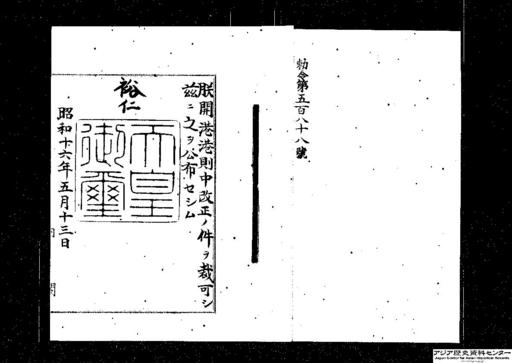 勅令第五百八十八號
朕開港港則中改正ノ件ヲ裁可シ
茲ニ之ヲ公布セシム
裕仁
天皇
御璽
昭和十六年五月十三日
内閣
アジア歴史資料センター
Japan Center for Asian Historical Records